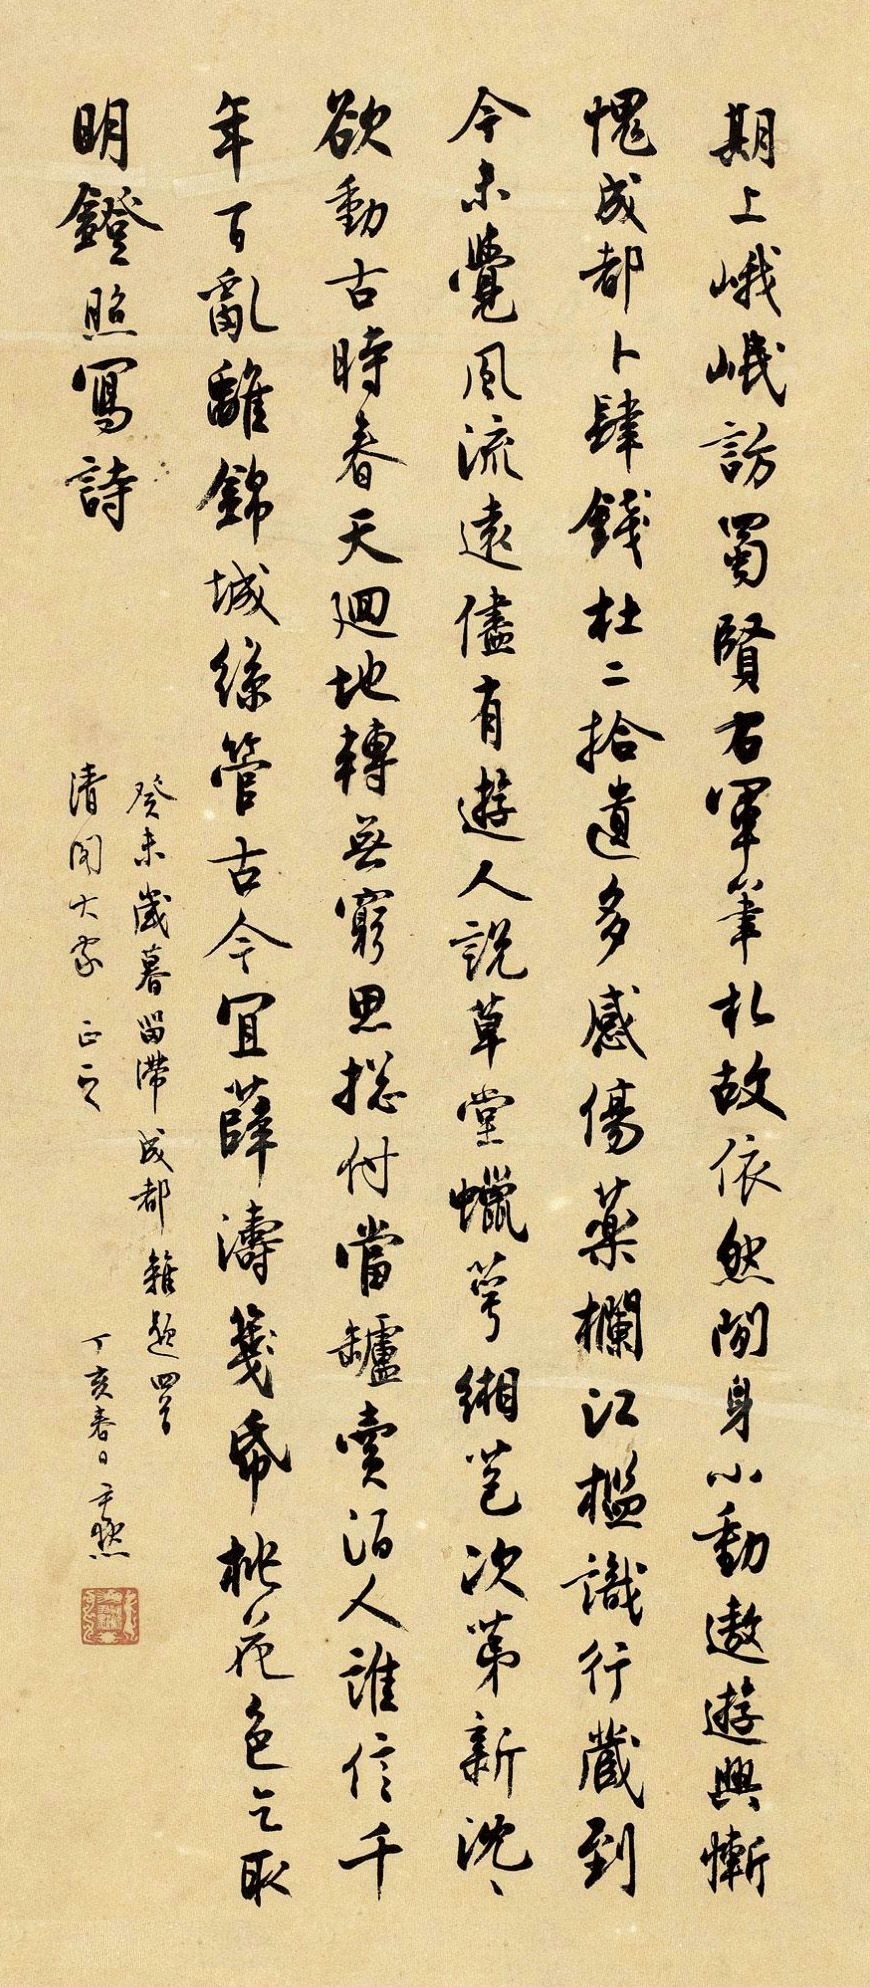 期上峨岷訪蜀賢右軍筆札故依然閒身小動遨遊興慚
愧成都卜肆錢杜二拾遺多感傷藥欄江檻識行藏到
今未覺風流遠儘有遊人說草堂蠟萼緗苞次第新沈〻
欲動古時春天迴地轉無窮思捴付當罏賣酒人誰信千
年百亂離錦城絲管古今宜薛濤箋紙桃花色乞取
明鐙照寫詩
癸未歲暮留滯成都雜題四首
清閟大家 正之
丁亥春日尹默